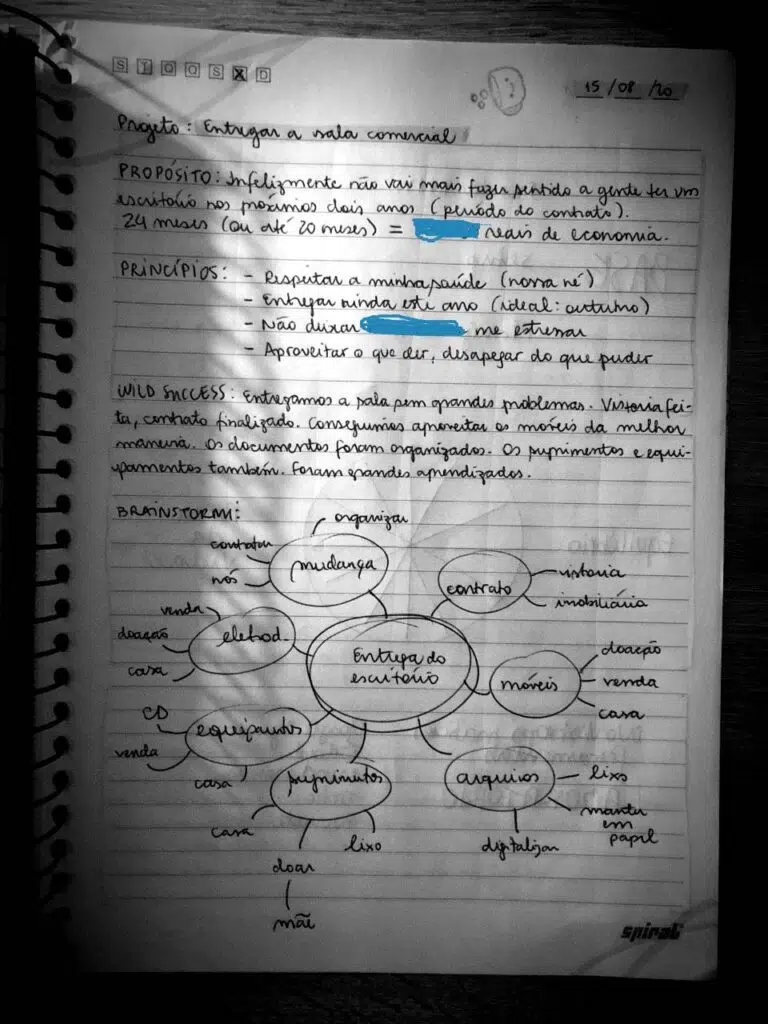 S T Q Q S X D
15/08/20
Projeto: Entregar a sala comercial
PROPÓSITO: Infelizmente não vai mais fazer sentido a gente ter um
escritório nos próximos dois anos (período do contrato).
24 meses (ou até 20 meses) = reais de economia.
PRINCÍPIOS: - Respeitar a minha saúde (nossa né)
- Entregar ainda este ano (ideal: outubro)
- Não deixar me estressar
- Aproveitar o que der, desapegar do que puder
WILD SUCCESS: Entregamos a sala sem grandes problemas. Vistoria fei-
ta, contrato finalizado. Conseguimos aproveitar os móveis da melhor
maneira. Os documentos foram organizados. Os suprimentos e equi-
pamentos também. Foram grandes aprendizados.
BRAINSTORM:
organizar
contratar
mudança
nós
contrato
vistoria
imobiliária
venda
eletrod.
doação
casa
Entrega do
escritório
móveis
doação
venda
casa
CD
equipamentos
venda
casa
suprimentos
casa
lixo
doar
mãe
arquivos
lixo
manter
em
papel
digitalizar
spiral